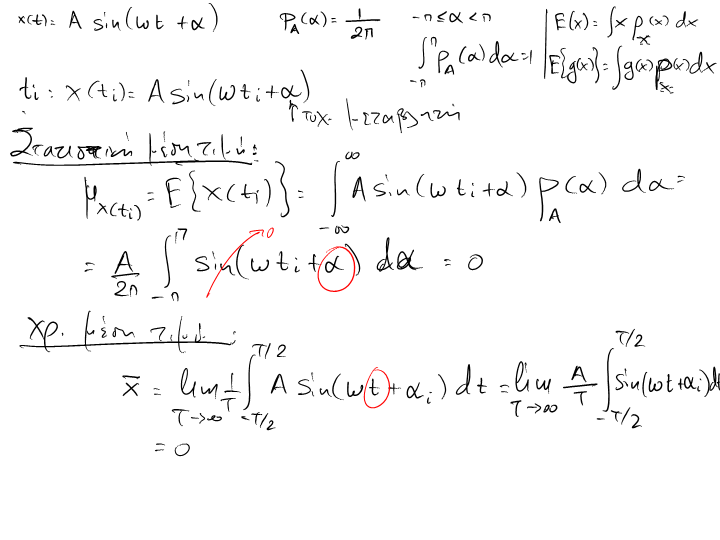 x(t)= A sin(ωt +α)   P_A(α) = 1/2π   -π≤α<π   E(x)= ∫x p_x(x) dx
∫_{-π}^{π} P_A(α)dα=1   E{g(x)}=∫g(x)p_x(x)dx
ti : x(ti)= A sin(ωti+α)
↑ τυχ. μεταβλητή
Στατιστική μέση τιμή:
μ_{x(ti)} = E{x(ti)}= ∫_{-∞}^{∞} A sin(ωti+α) P_A(α) dα=
= A/2π ∫_{-π}^{π} sin(ωti+α) dα = 0   0
Χρ. μέση τιμή:
x̄ = lim_{T→∞} 1/T ∫_{-T/2}^{T/2} A sin(ωt+αi) dt = lim_{T→∞} A/T ∫_{-T/2}^{T/2} sin(ωt+αi)dt
= 0